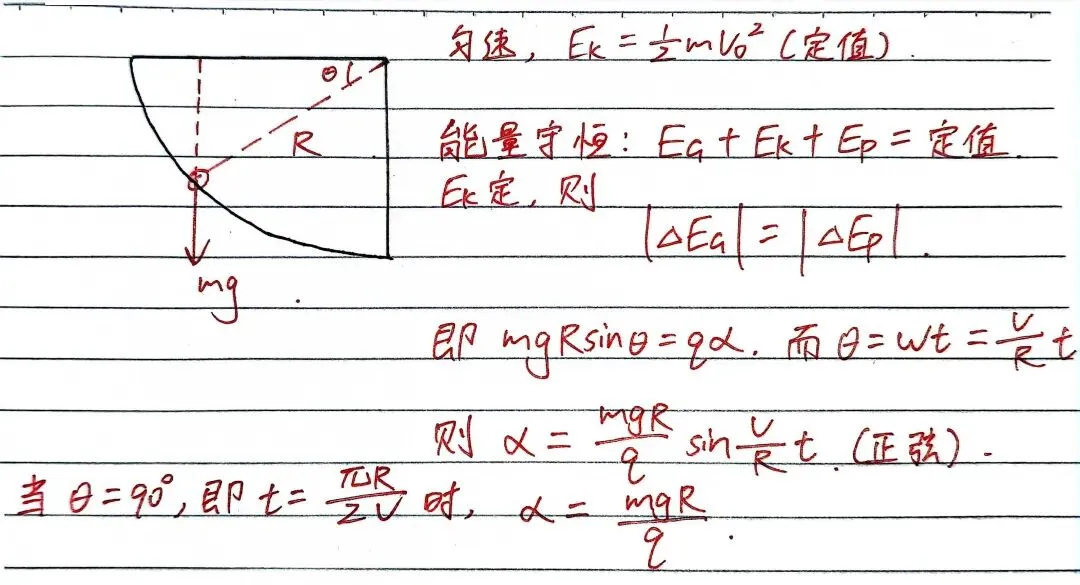 匀速, Eₖ = ½mv₀² (定值)
θ
R
能量守恒: E_G + Eₖ + Eₚ = 定值.
Eₖ定, 则
|ΔE_G| = |ΔEₚ|.
mg
即 mgRsinθ = qα. 而 θ = ωt = v/R t
则 α = mgR/q sin v/R t. (正弦).
当 θ = 90°, 即 t = πR/2v 时, α = mgR/q.